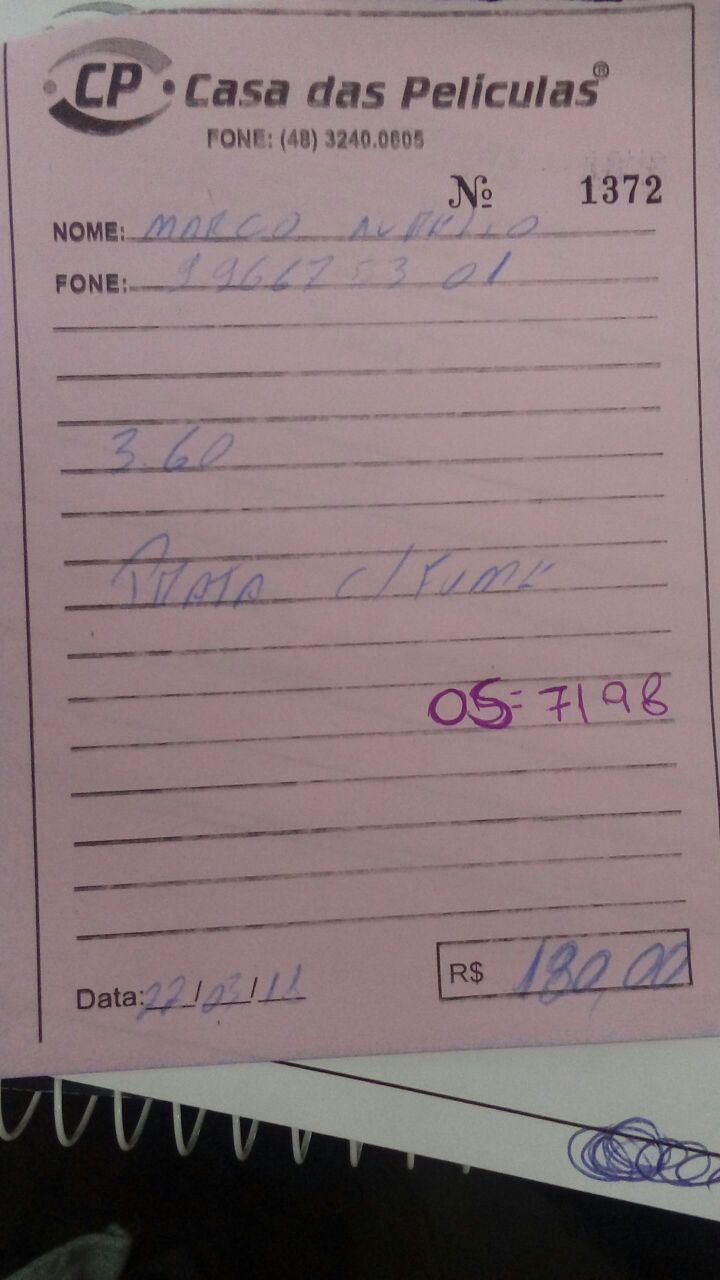 CP Casa das Películas®
FONE: (48) 3240.0605
Nº 1372
NOME: MARCO AURELIO
FONE: 996675301
3.60
PRATA C/ FUME
OS= 7198
Data: 22/03/18 R$ 180,00